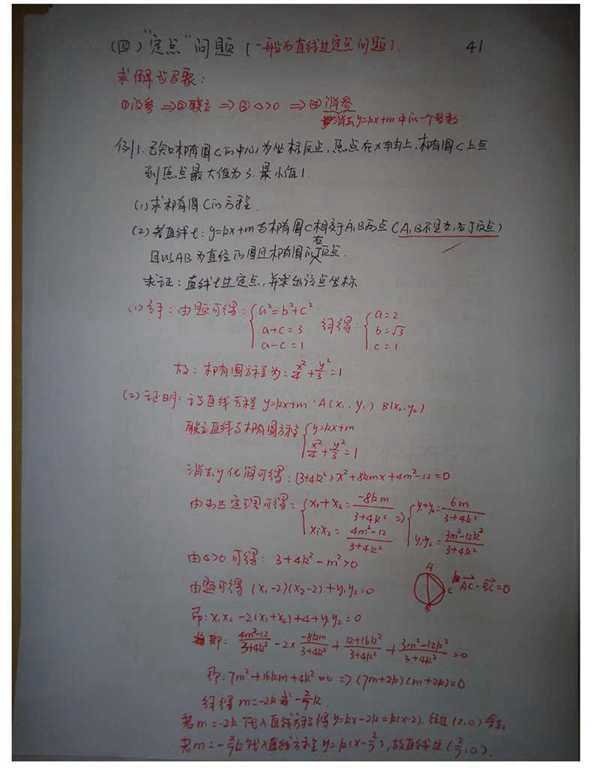 (四) "定点"问题 (一般为直线过定点问题). 41
求解步骤:
①设参 ⇒ ②联立 ⇒ ③ △>0 ⇒ ④ 消参
消去y=kx+m中的一个参数
例1. 已知椭圆C的中心为坐标原点, 焦点在x轴上, 椭圆C上点
到焦点最大值为3. 最小值1.
(1) 求椭圆C的方程.
(2) 若直线l: y=kx+m与椭圆C相交于A,B两点 (A,B不是左,右顶点)
且以AB为直径的圆过椭圆的右顶点.
求证: 直线l过定点, 并求出该点坐标
(1) 解: 由题可得: { a²=b²+c² a+c=3 a-c=1 解得 { a=2 b=√3 c=1
故: 椭圆方程为: x²/4 + y²/3 = 1
(2) 证明: 设直线方程 y=kx+m. A(x₁, y₁) B(x₂, y₂)
联立直线与椭圆方程 { y=kx+m x²/4 + y²/3 = 1
消去y化简可得: (3+4k²)x²+8kmx+4m²-12=0
由韦达定理可得: { x₁+x₂ = -8km/3+4k² x₁x₂ = 4m²-12/3+4k² ⇒ { y₁+y₂ = 6m/3+4k² y₁y₂ = 3m²-12k²/3+4k²
由△>0 可得: 3+4k²-m²>0
由题可得 (x₁-2)(x₂-2)+y₁y₂=0 A C B AC·BC=0
即: x₁x₂-2(x₁+x₂)+4+y₁y₂=0
即: 4m²-12/3+4k² - 2× -8km/3+4k² + 12+16k²/3+4k² + 3m²-12k²/3+4k² = 0
即: 7m²+16km+4k²=0 ⇒ (7m+2k)(m+2k)=0
解得 m=-2k 或 -2/7k
若m=-2k 代入直线方程得 y=kx-2k=k(x-2). 过(2,0)
若m=-2/7k 代入直线方程 y=k(x-2/7), 故直线过(2/7,0).